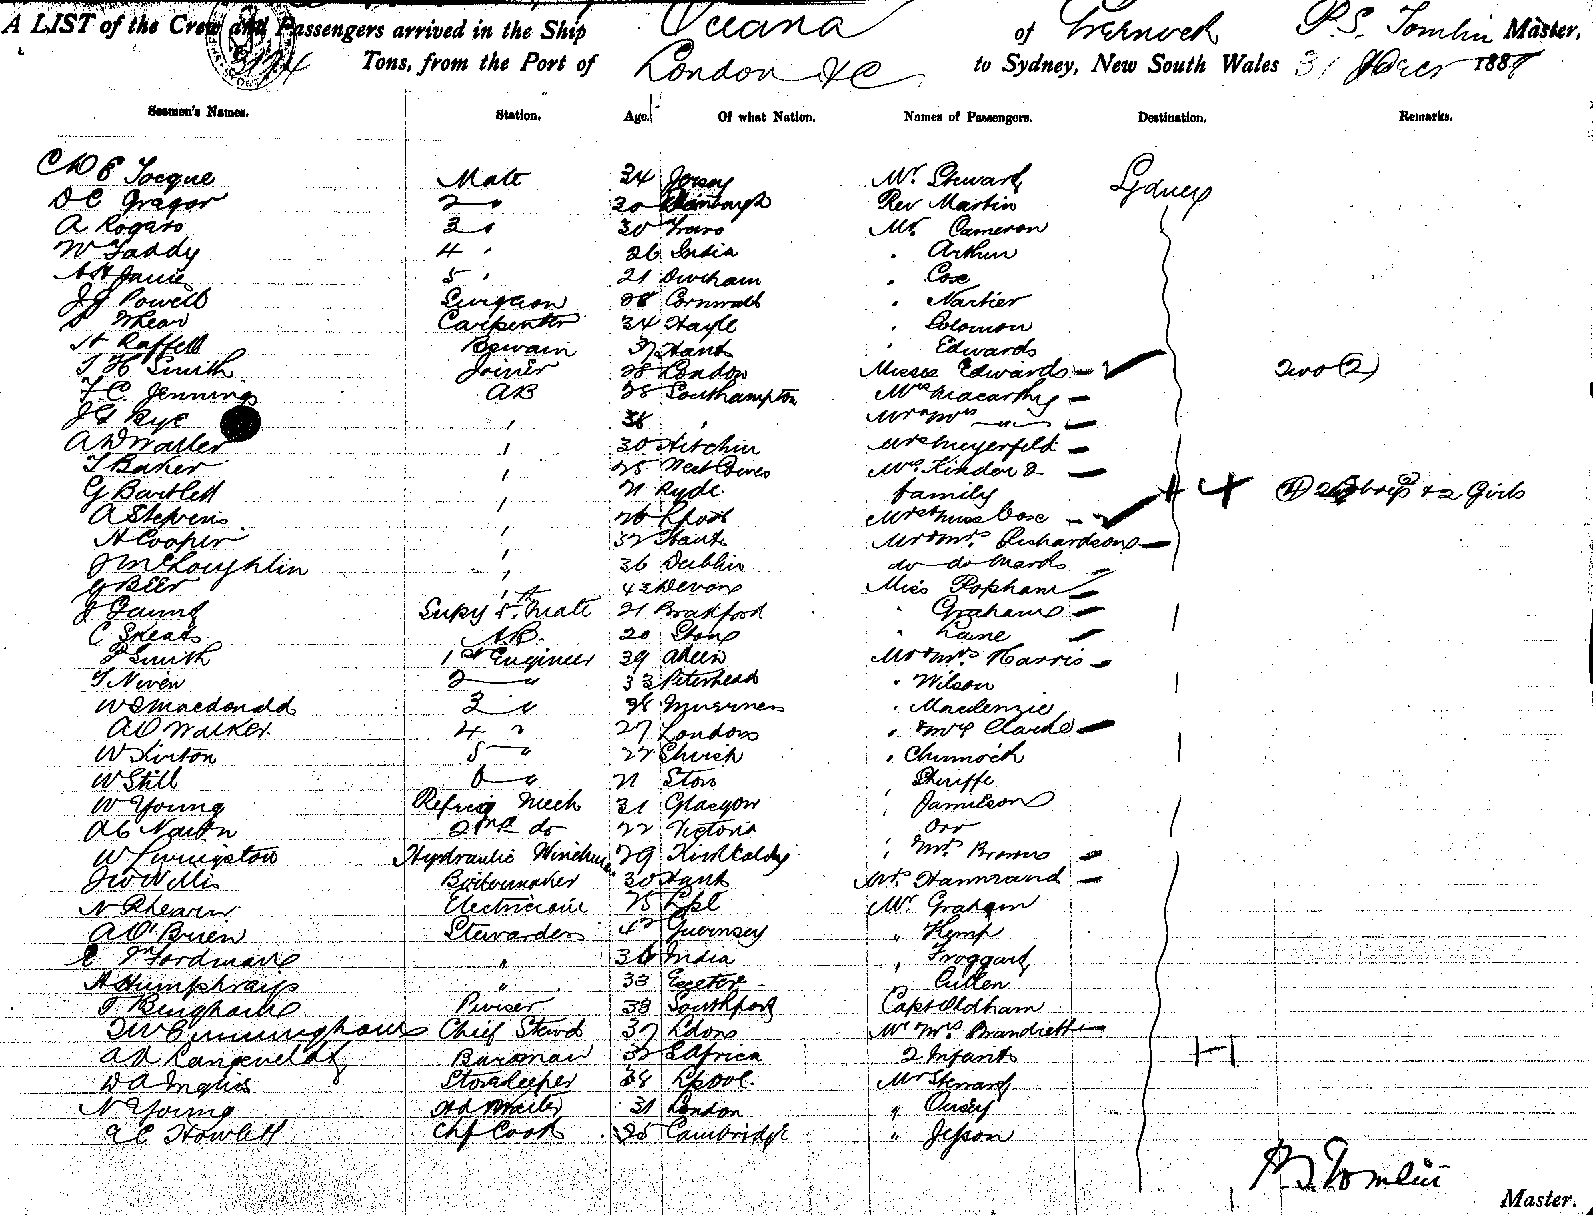 A LIST of the Crew and Passengers arrived in the Ship Oceana of Greenock P. S. Tomlin Master,
Tons, from the Port of London &C to Sydney, New South Wales 31 Decr 188
Seamen's Names. Station. Age. Of what Nation. Names of Passengers. Destination. Remarks.
Tocque Mate 34 Jersey Mr Stewart Sydney
D C Gregor 2 " 30 Edinburgh Rev Martin
A Rogers 3 " 30 Truro Mr. Cameron
W Taddy 4 " 26 India " Arthur
5 " 21 " Cox
J J Powell Surgeon 28 Cornwall "
Carpenter 34 Hayle " Solomon
H Raffell Boswain 37 Hants " Edwards
T H Smith Joiner 28 London Misses Edwards two (2)
F. C. Jennings AB 28 Southampton Mrs Macarthy
J G Pye " 38 " Mr & Mrs "
A W Waller " 30 Hitchin Mrs Meyerfeld
T Baker " 25 West Cowes Mrs Kinder &
G Bartlett " 21 Ryde family 4 (4) 2 boys + 2 Girls
A Stevens " 26 Lpool Mrs & Miss Cox
H Cooper " 32 Hants Mr & Mrs Richardson
J McLoughlin " 36 Dublin do do
G Beer " 43 Devon Miss Popham
Supy 5th Mate 21 Bradford " Graham
C Skeats AB. 20 " Lane
P Smith 1st Engineer 39 Aden Mr & Mrs. Harris
T Niven 2 " 33 Peterhead " Wilson
W S Macdonald 3 " 28 Inverness " Mackenzie
A O Walker 4 " 27 London " & Mrs Clarke
W Kirton 5 " 22 " Chinnock
W Still 6 " 21 " Sheriffe
W Young Refrig Mech 31 Glasgow " Jamieson
2nd do 22 Victoria " Orr
W Livingston Hydraulic 29 Kirkcaldy " Mrs. Brown
J W Willis Boilermaker 30 Hants Mrs. Hammond
N Ahearn Electrician 25 Lpl Mr. Graham
A O'Brien Stewardess 42 Guernsey " Kemp
" 36 India " Froggart
A Humphrays " 33 Exeter " Cullen
T Bingham Purser 38 Southport Capt Oldham
Cunningham Chief Stewd 37 Mr Mrs
A A Langeveldt Barman 32 S Africa 2 Infants
W A Inglis Storekeeper 28 Lpool. Mr Steward
N Young Hd Waiter 31 London "
A C Howlett Chf Cook 25 Cambridge " Jepson
P. S. Tomlin
Master.